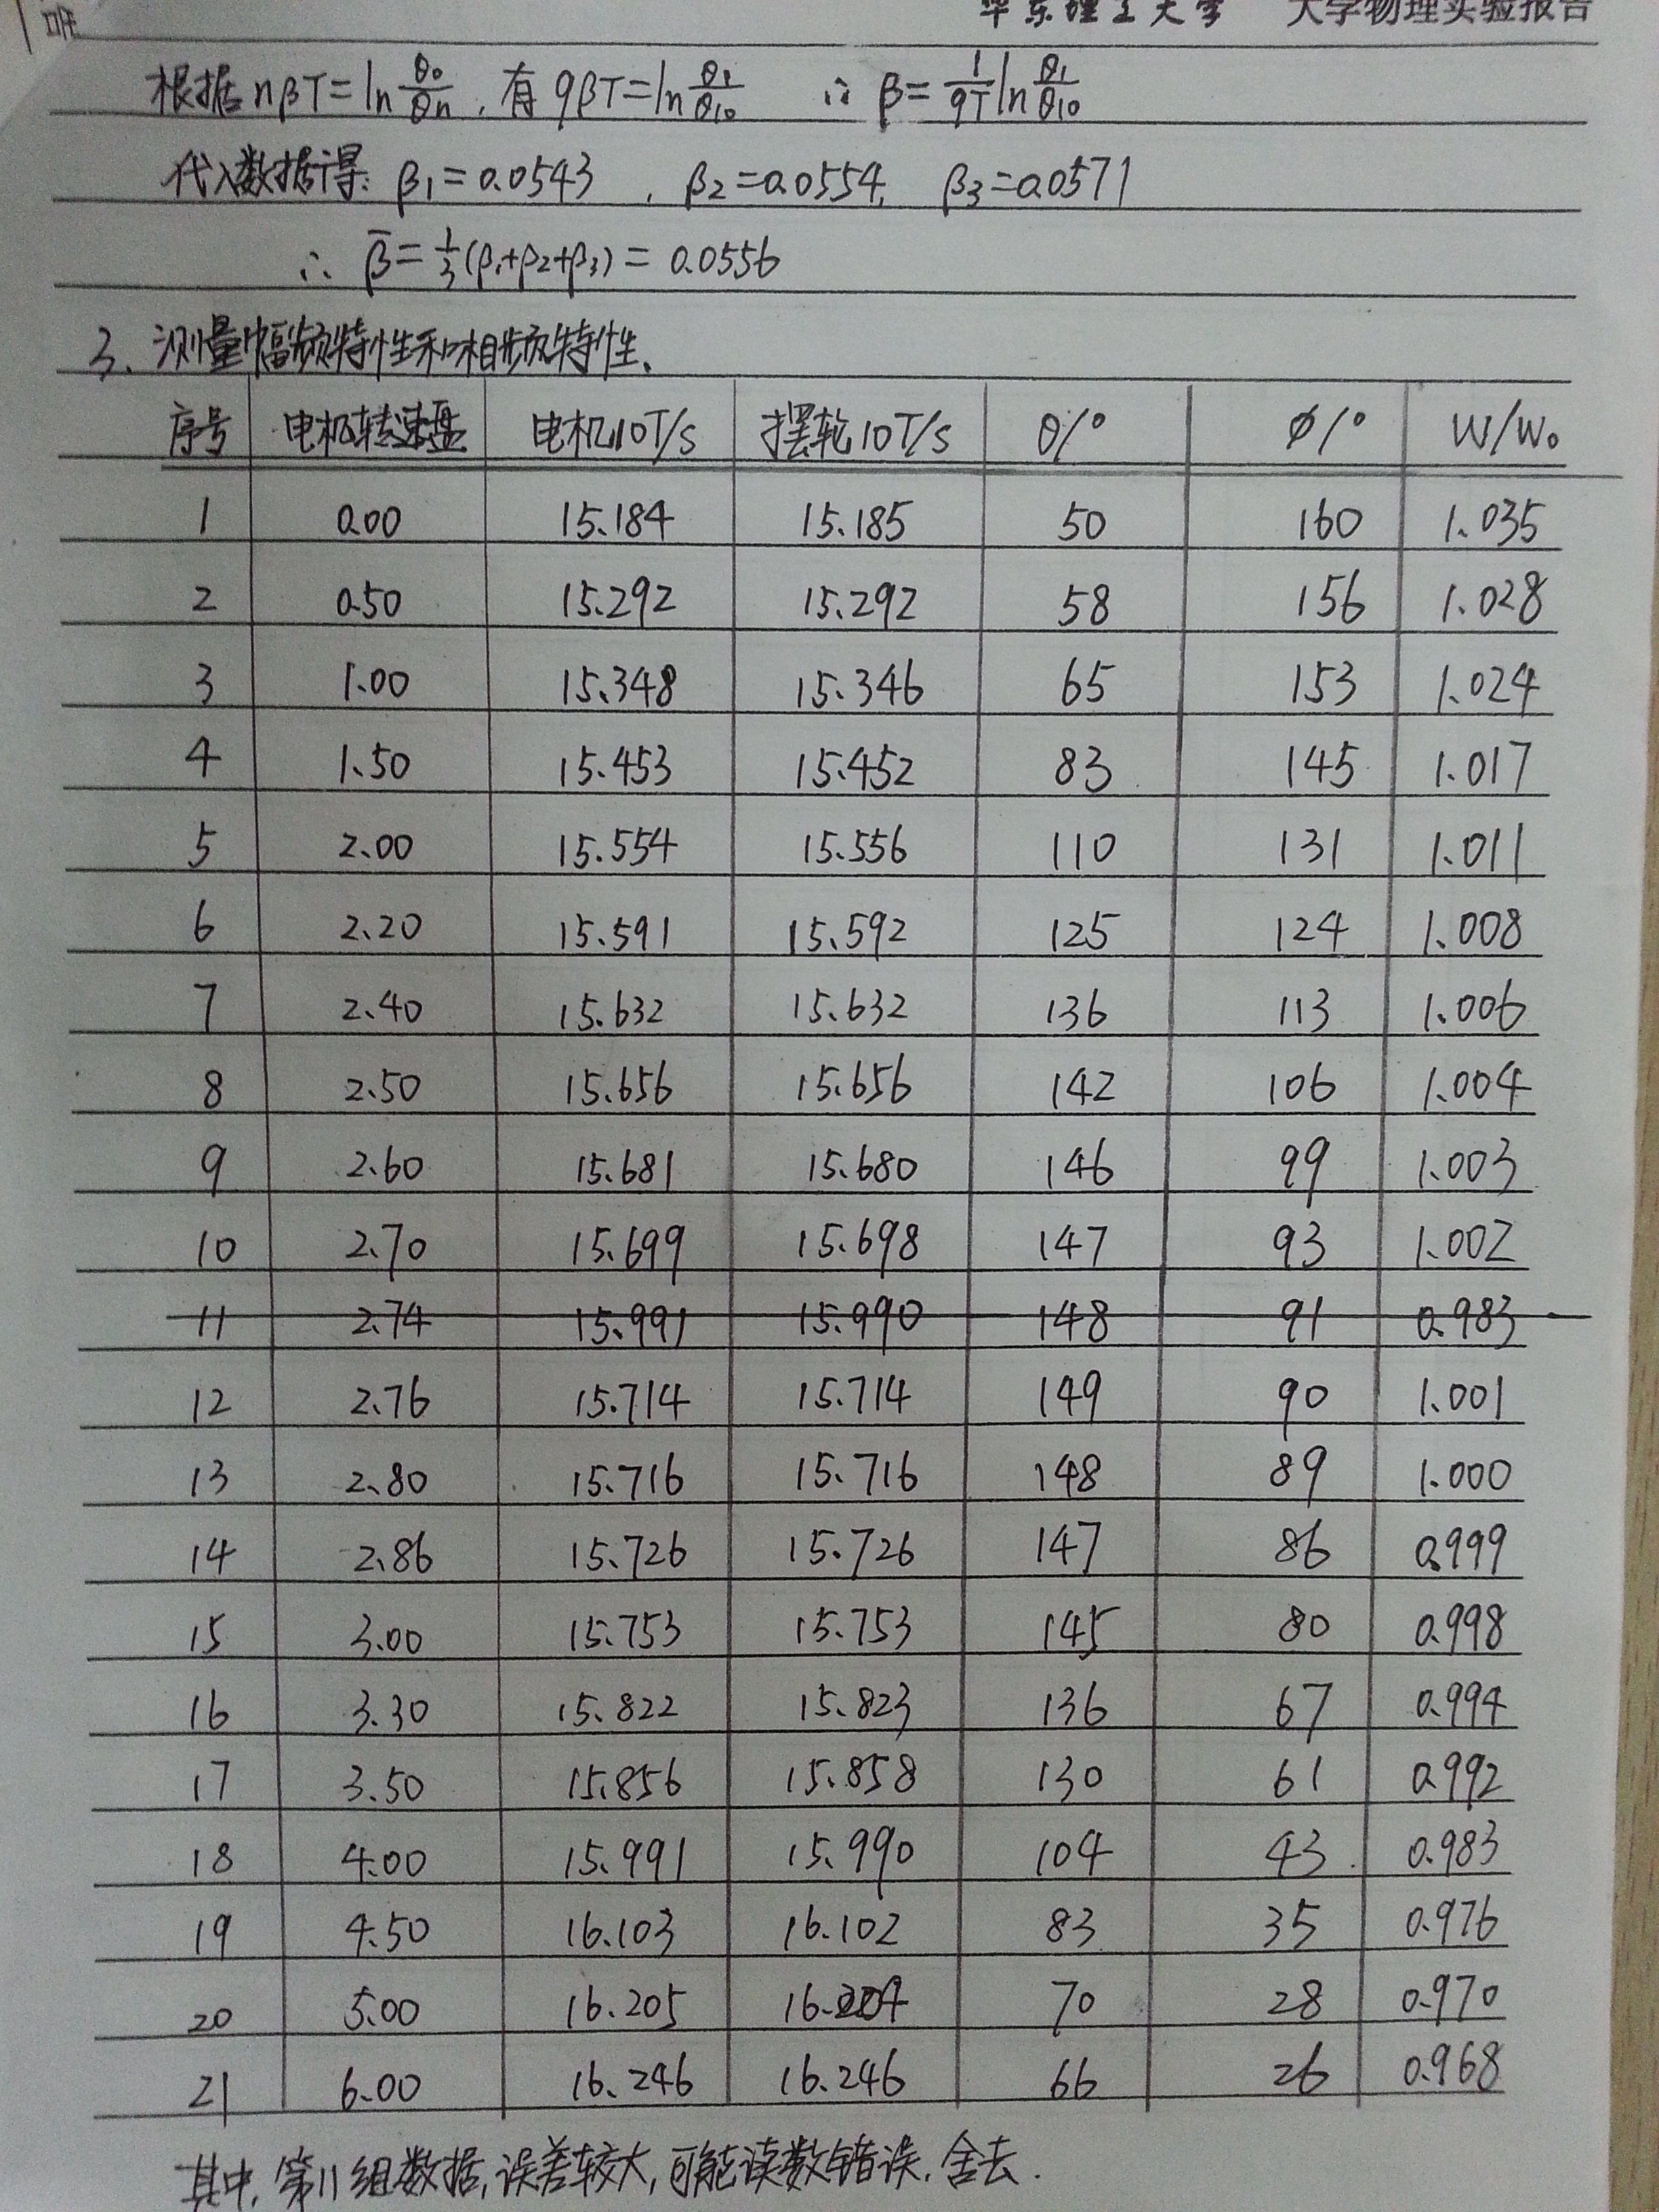 华东理工大学 大学物理实验报告
根据nβT=ln θ₀/θn, 有9βT=ln θ₁/θ₁₀ ∴ β=1/9T ln θ₁/θ₁₀
代入数据得: β₁=0.0543, β₂=0.0554, β₃=0.0571
∴ β̄=1/3(β₁+β₂+β₃)=0.0556
3、测量幅频特性和相频特性、
序号 电机转速盘 电机10T/s 摆轮10T/s θ/° φ/° W/W₀
1 0.00 15.184 15.185 50 160 1.035
2 0.50 15.292 15.292 58 156 1.028
3 1.00 15.348 15.346 65 153 1.024
4 1.50 15.453 15.452 83 145 1.017
5 2.00 15.554 15.556 110 131 1.011
6 2.20 15.591 15.592 125 124 1.008
7 2.40 15.632 15.632 136 113 1.006
8 2.50 15.656 15.656 142 106 1.004
9 2.60 15.681 15.680 146 99 1.003
10 2.70 15.699 15.698 147 93 1.002
11 2.74 15.991 15.990 148 91 0.983
12 2.76 15.714 15.714 149 90 1.001
13 2.80 15.716 15.716 148 89 1.000
14 2.86 15.726 15.726 147 86 0.999
15 3.00 15.753 15.753 145 80 0.998
16 3.30 15.822 15.823 136 67 0.994
17 3.50 15.856 15.858 130 61 0.992
18 4.00 15.991 15.990 104 43 0.983
19 4.50 16.103 16.102 83 35 0.976
20 5.00 16.205 16.204 70 28 0.970
21 6.00 16.246 16.246 66 26 0.968
其中, 第11组数据, 误差较大, 可能读数错误, 舍去.